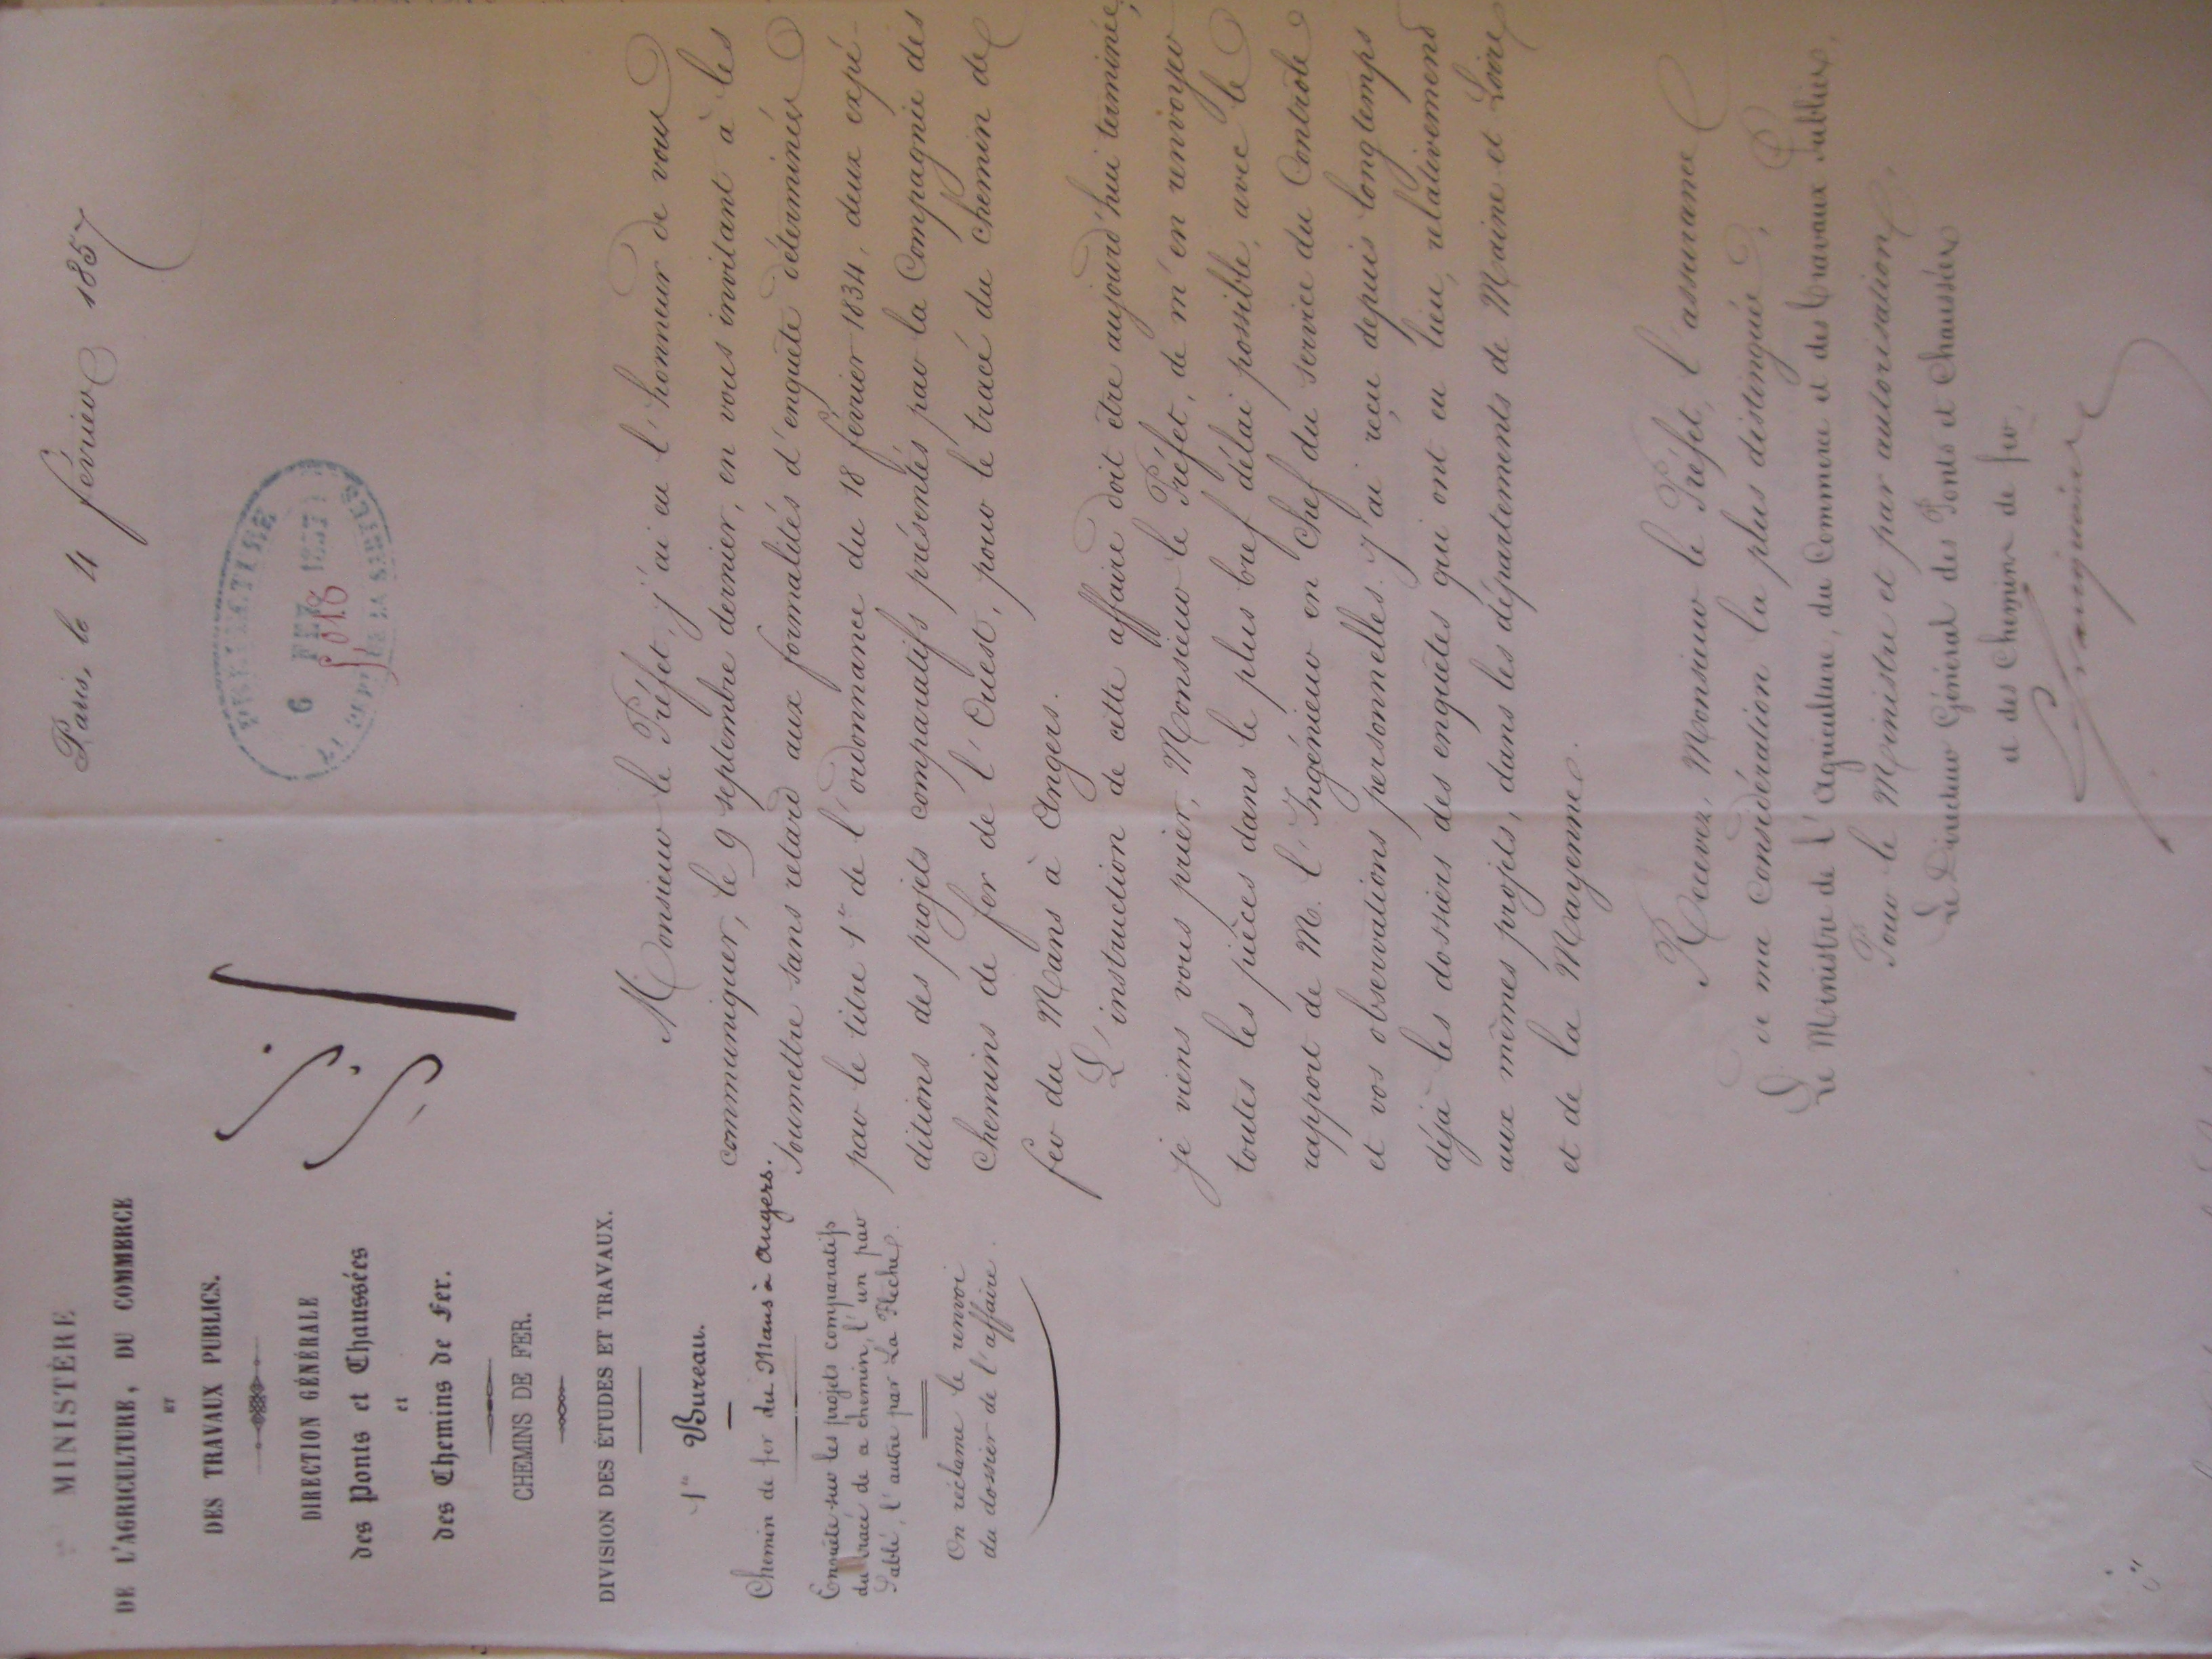 MINISTÈRE
DE L'AGRICULTURE, DU COMMERCE
ET
DES TRAVAUX PUBLICS.
DIRECTION GÉNÉRALE
des Ponts et Chaussées
et
des Chemins de Fer.
CHEMINS DE FER.
DIVISION DES ÉTUDES ET TRAVAUX.
1er Bureau.
Chemin de fer du Mans à Angers.
Enquête sur les projets comparatifs
du tracé de ce chemin, l'un par
Sablé, l'autre par La Flèche.
On réclame le renvoi
du dossier de l'affaire.
Paris, le 4 février 1857
PRÉFECTURE
6 FEV 1857
DE LA SARTHE
Monsieur le Préfet, j'ai eu l'honneur de vous
communiquer, le 9 septembre dernier, en vous invitant à les
soumettre sans retard aux formalités d'enquête déterminées
par le titre 1er de l'ordonnance du 18 février 1834, deux expé-
ditions des projets comparatifs présentés par la Compagnie des
Chemins de fer de l'Ouest, pour le tracé du chemin de
fer du Mans à Angers.
L'instruction de cette affaire doit être aujourd'hui terminée,
je viens vous prier, Monsieur le Préfet, de m'en renvoyer
toutes les pièces dans le plus bref délai possible, avec le
rapport de M. l'Ingénieur en Chef du service du Contrôle
et vos observations personnelles. J'ai reçu depuis longtemps
déjà les dossiers des enquêtes qui ont eu lieu, relativement
aux mêmes projets, dans les départements de Maine et Loire
et de la Mayenne.
Recevez, Monsieur le Préfet, l'assurance
de ma considération la plus distinguée,
Le Ministre de l'Agriculture, du Commerce et des Travaux Publics,
Pour le Ministre et par autorisation,
Le Directeur Général des Ponts et Chaussées
et des Chemins de fer,